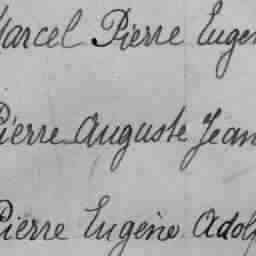 Marcel Pierre Eugen
Pierre Auguste Jean
Pierre Eugène Adolp